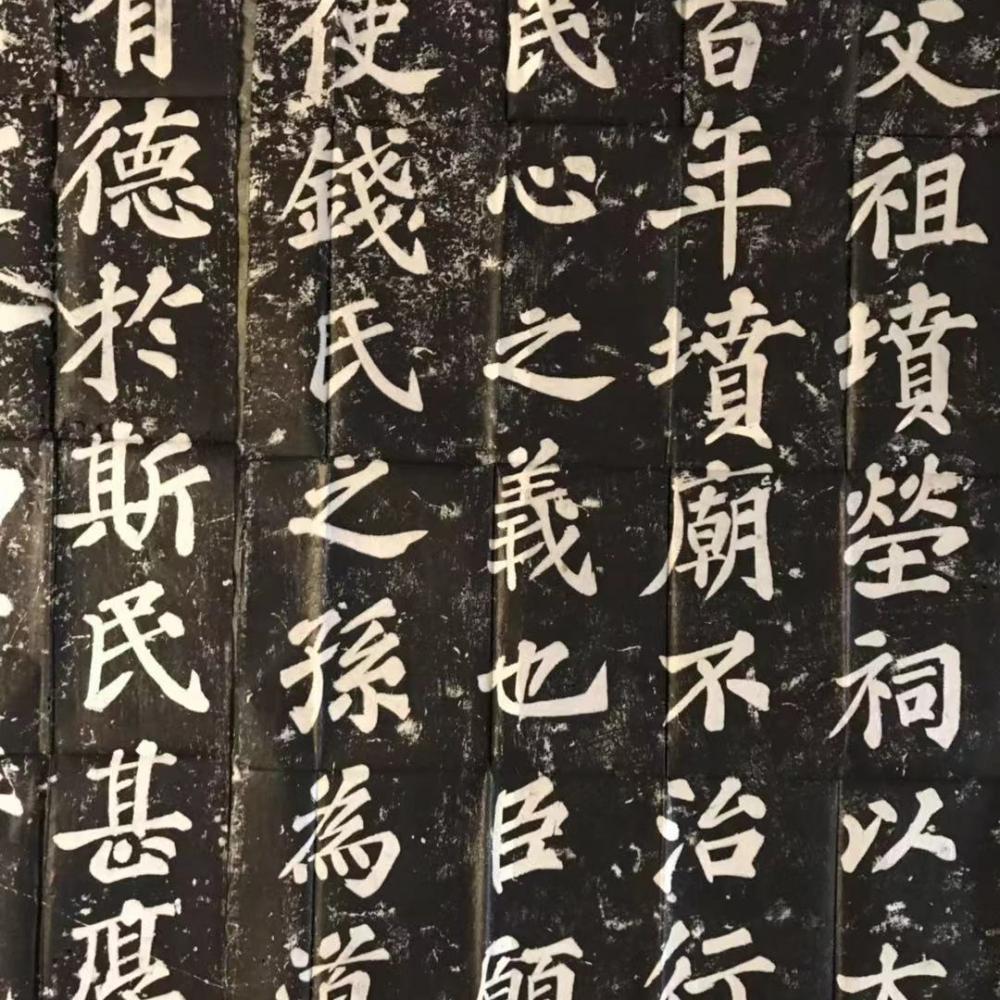 父祖墳塋祠以
百年墳廟不治行
民心之義也臣願
使錢氏之孫為道
有德於斯民甚厚